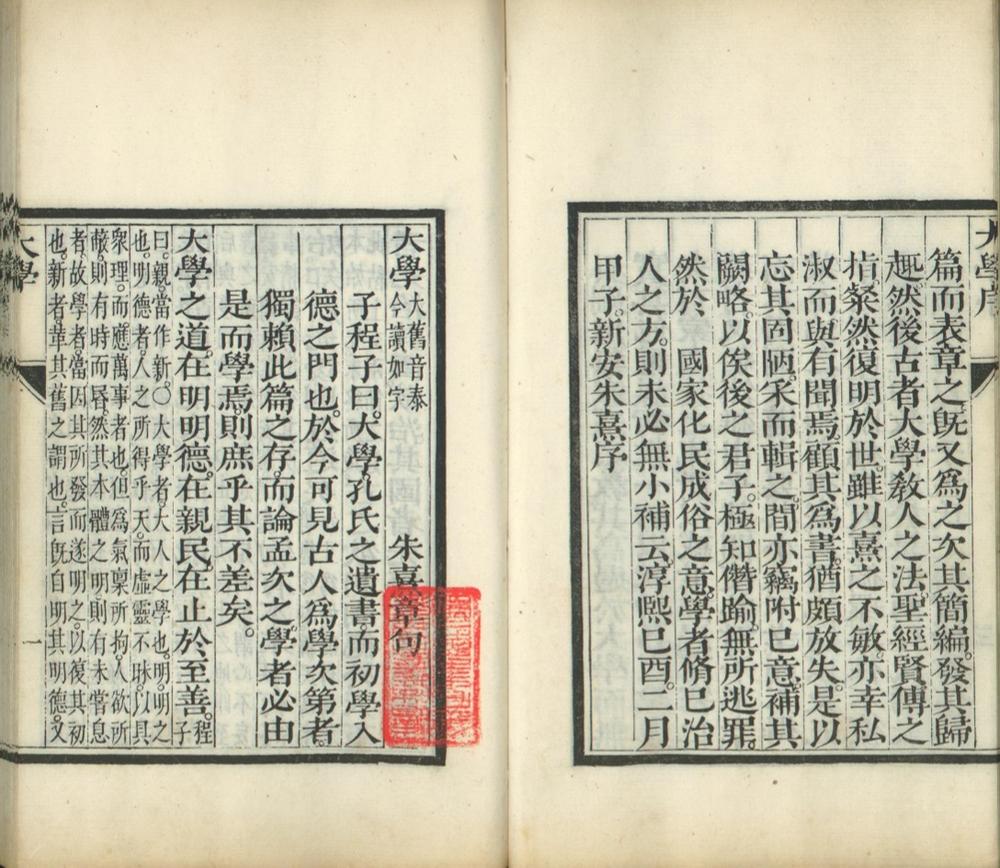 大學序
篇而表章之旣又爲之次其簡編。發其歸
趣。然後古者大學敎人之法。聖經賢傳之
指。粲然復明於世。雖以熹之不敏。亦幸私
淑而與有聞焉。顧其爲書。猶頗放失。是以
忘其固陋。采而輯之。閒亦竊附己意。補其
闕略。以俟後之君子。極知僭踰。無所逃罪。
然於 國家化民成俗之意。學者脩己治
人之方。則未必無小補云。淳熙己酉。二月
甲子。新安朱熹序
大學 大舊音泰 今讀如字 朱熹章句
子程子曰。大學。孔氏之遺書而初學入
德之門也。於今可見古人爲學次第者。
獨賴此篇之存。而論孟次之。學者必由
是而學焉則庶乎其不差矣。
大學之道。在明明德。在親民。在止於至善。程子
曰。親當作新。○大學者大人之學也。明明之
也。明德者。人之所得乎天。而虛靈不昧。以具
衆理。而應萬事者也。但爲氣稟所拘。人欲所
蔽。則有時而昏。然其本體之明則有未嘗息
者。故學者。當因其所發而遂明之。以復其初
也。新者。革其舊之謂也。言旣自明其明德。又
大學
一